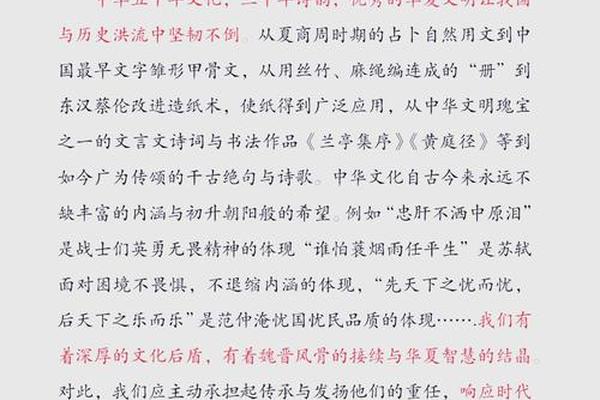 中华五千年文化，三千年诗韵，优秀的华夏文明让我国
与历史洪流中坚韧不倒。从夏商周时期的占卜自然用文到中
国最早文字雏形甲骨文，从用丝竹、麻绳编连成的“册”到
东汉蔡伦改进造纸术，使纸得到广泛应用，从中华文明瑰宝
之一的文言文诗词与书法作品《兰亭集序》《黄庭径》等到
如今广为传颂的千古绝句与诗歌。中华文化自古今来永远不
缺丰富的内涵与初升朝阳般的希望。例如“忠肝不洒中原泪”
是战士们英勇无畏精神的体现“谁怕蓑烟雨任平生”是苏轼
面对困境不畏惧，不退缩内涵的体现，“先天下之忧而忧，
后天下之乐而乐”是范仲淹忧国忧民品质的体现…….我们有
着深厚的文化后盾，有着魏晋风骨的接续与华夏智慧的结晶。
对此，我们应主动承担起传承与发扬他们的重任，响应时代